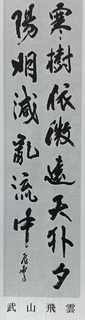 寒樹依微遠天外夕
陽明滅亂流中 飛雲
武山飛雲